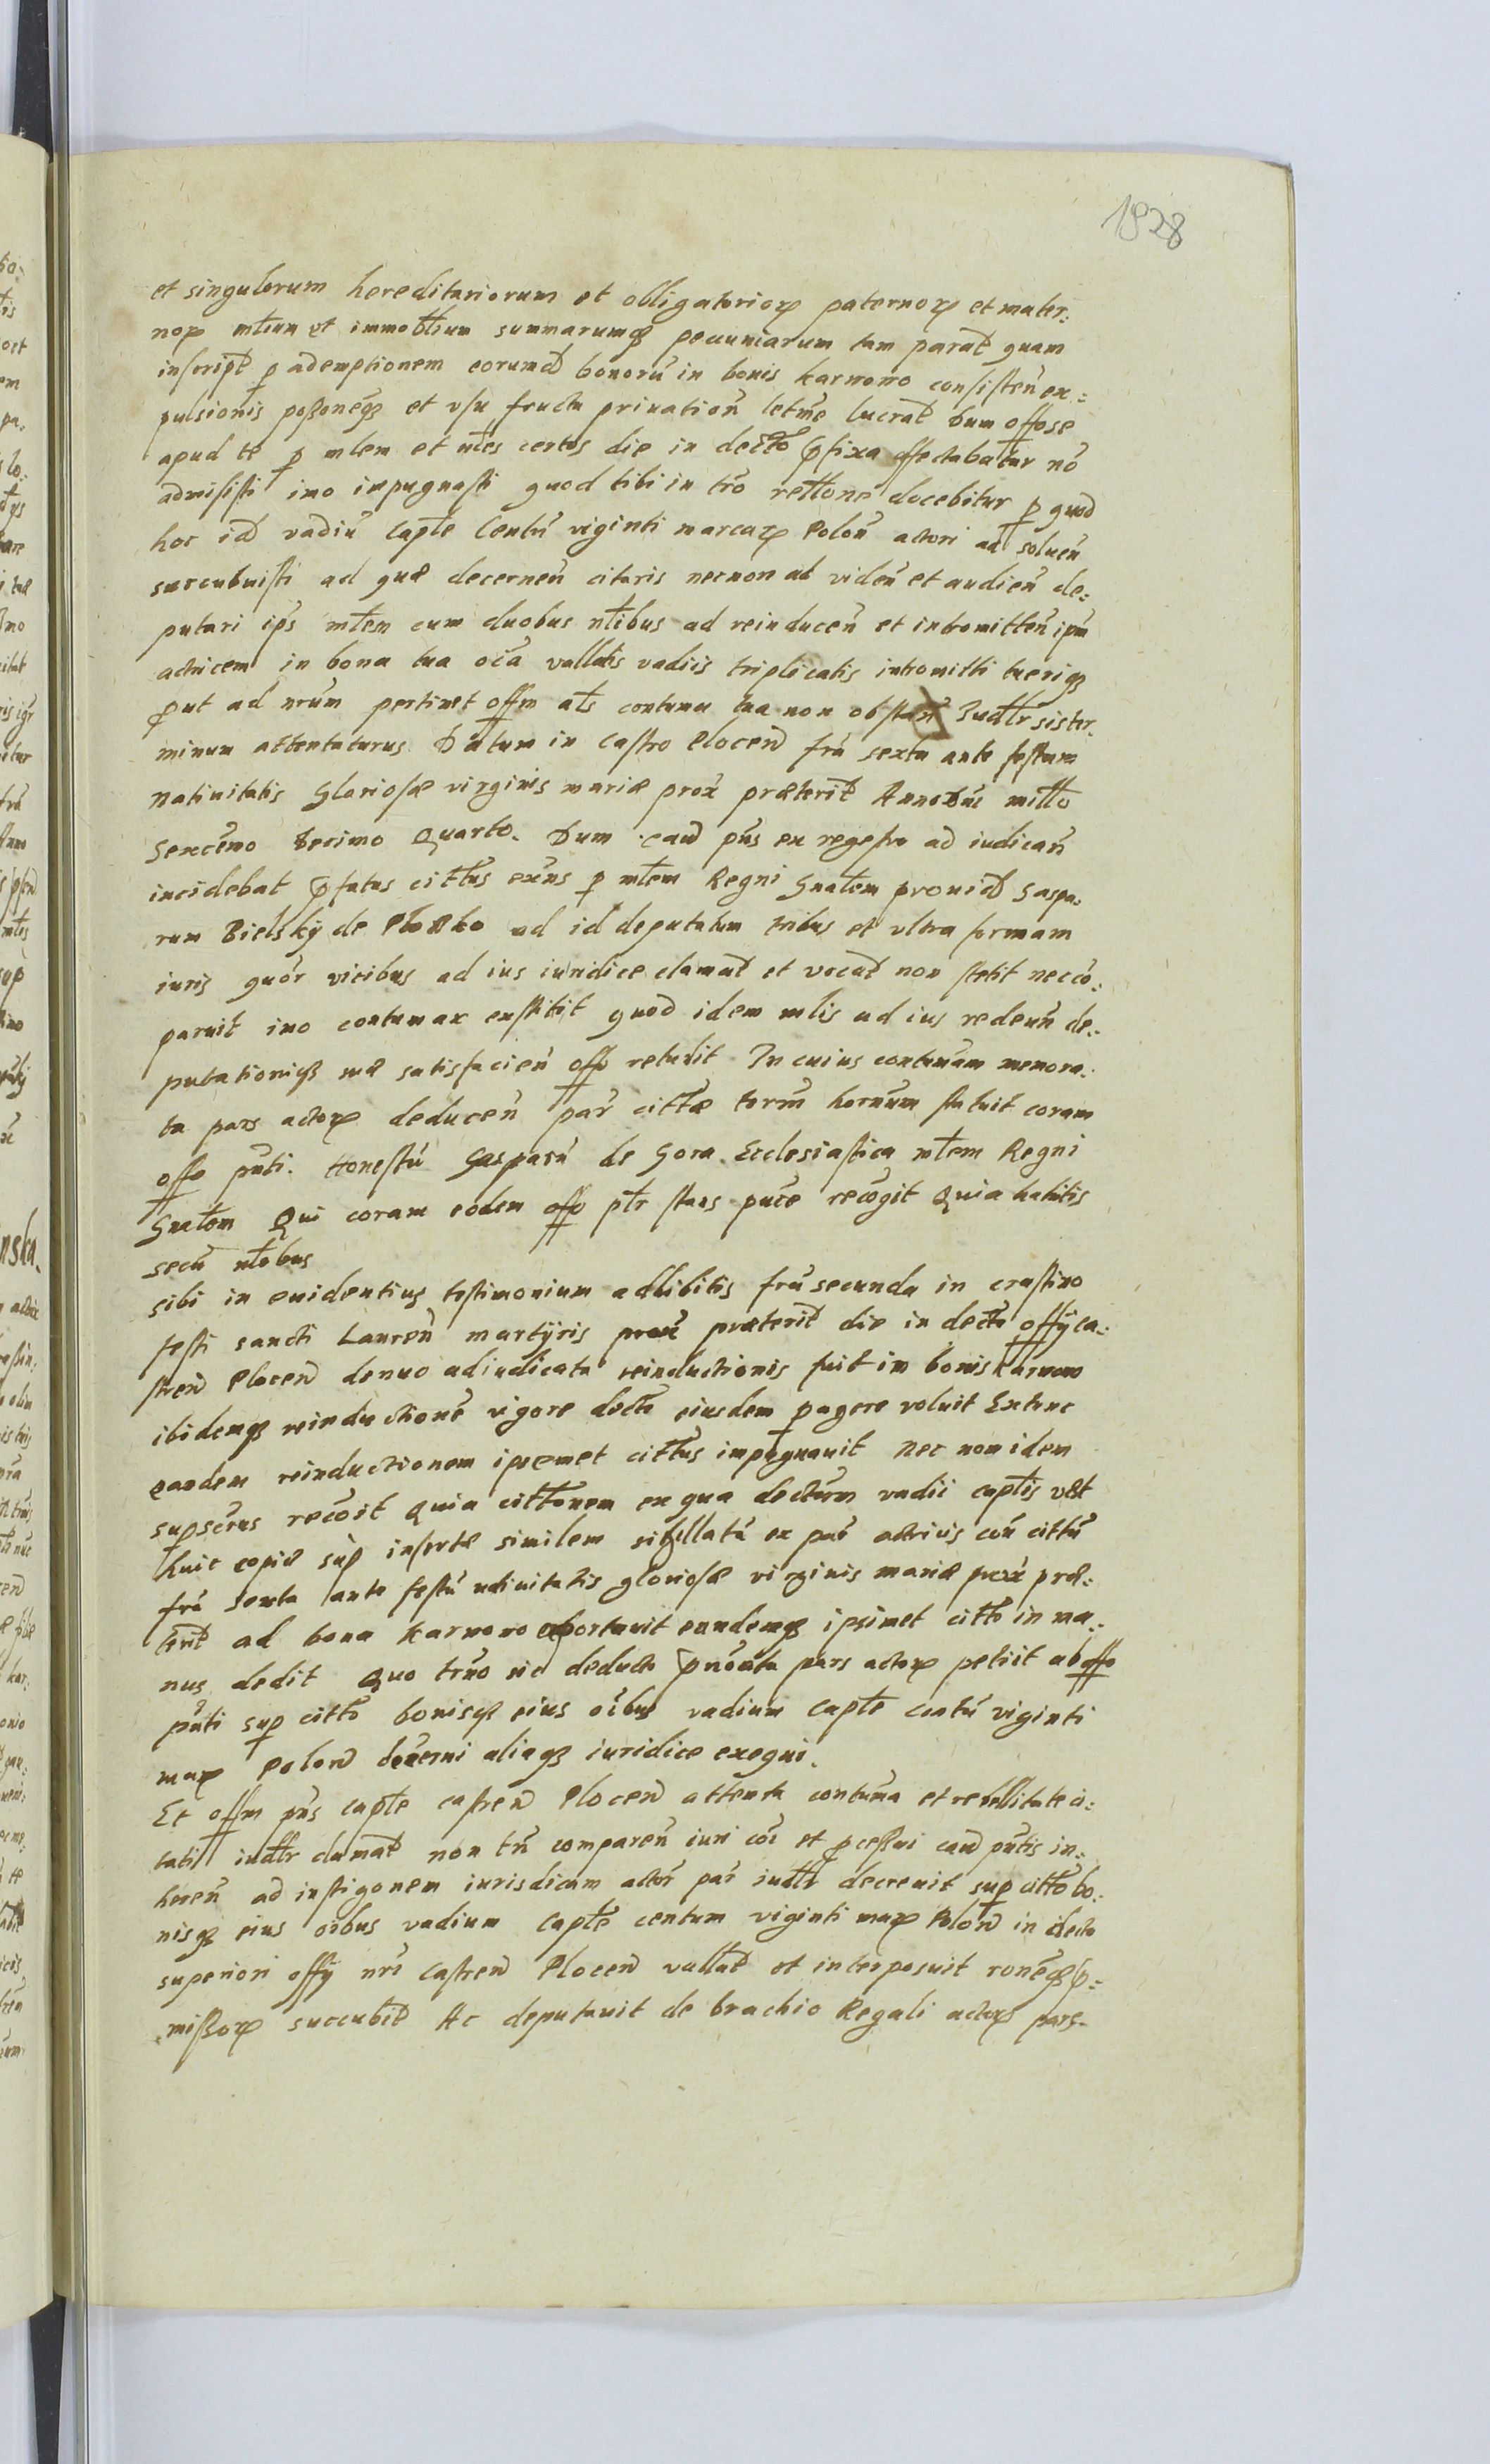 1828
et singulorum hereditariorum et obligatoriorꝝ paternorꝝ et mater:
norꝝ mtium et immobilium summarumqꝫ pecuniarum tam parat̃ quam
inscript̃ ꝑ ademptionem eorumd̃ bonorũ in bonis Karwowo consisteñ ex:
pulsionis possoneqꝫ et vsu fructu priuatioñ letme lucrat̃ Dum offose
apud te ꝑ mlem et nles certos die in dectto p̃fixa affectabatur nõ
admisisti imo impugnasti quod tibi in trõ rettone docebitur ꝑ quod
hoc id̃ vadiũ capte Centũ viginti marcarꝝ Poloñ actori ad solueñ
succubuisti ad quæ decerneñ citaris necnon ad videñ et audieñ de:
putari ips mtem cum duobus ntibus ad reinduceñ et intromitteñ ipm̃
actricem in bona tua oĩa vallatis vadiis triplicatis intromitti tueriqꝫ
ꝓut ad nrũm pertinet offm als contuma tua non obstañ Judtr sis ter:
minum attentaturus Datum in Castro Ploceñ fr̃a sexta ante festum
Natiuitatis Gloriosæ virginis mariæ prox̃ præterit̃ Anno Dñi mitto
Sexceño Decimo Quarto. Dum caũ pñs ex regestro ad iudicañ
incidebat p̃fatus cittus exñs ꝑ mtem Regni Gnatem prouid̃ Gaspa:
rum Bielsky de Plozko ad id deputatum tribus et vltra formam
iuris quõr vicibus ad ius iuridice clamat̃ et vocat̃ non stetit nec cõ:
paruit imo contumax exstitit quod idem mlis ad ius redeuñ de:
putationiqꝫ suæ satisfacieñ offo retulit In cuius contumam memora:
ta pars actorꝝ deduceñ par cittæ term̃ hornum̃ statuit coram
offo pñti. Honestũ Gasparũ de Gora Ecclesiastica mtem Regni
Gnatem Qui coram eodem offo ptr stans pure recogit Quia habitis
secũ ntobus
sibi in euidentius testimonium adhibitis fr̃a secunda in crastino
festi sancti Laureñ martyris prox̃ præterit̃ die in dectto offy ca:
streñ Ploceñ denuo adiudicata reinductionis fuit in bonis Karwowo
ibidemqꝫ reinductionẽ vigore dectti eiusdem ꝑagere voluit Extunc
eandem reinductionem ipsemet cittus impugnauit nec non idem
supscrus recõit Quia cittonem ex qua dectum vadii captis vltt
huic copiæ sup̃ insertæ similem sigillatã ex par actricis cõu cittũ
fr̃a sexta ante festũ natiuitatis gloriosæ virginis mariæ prox̃ præ:
terit̃ ad bona Karwowo apportauit eandemqꝫ ipsimet citto in ma:
nus dedit Quo trño sic deducto p̃nõata pars actorꝝ petiit ab offo
pñti sup citto bonisqꝫ eius oĩbus vadium Capte centũ viginti
marꝝ Poloñ decerni aliaqꝫ iuridice exequi.
Et offm pñs capte castreñ Ploceñ attenta contuma et rebellitate ci:
tati iudtr clamat̃ non tñ compareñ iuri cõi et ꝓcessui caũ pñtis in:
hereñ ad instigonem iurisdicam actoř par iudtr decreuit sup citto bo:
nisqꝫ eius oĩbus vadium Capte centum viginti marꝝ Poloñ in decto
superiori offy nri Castreñ Ploceñ vallat̃ et interposuit ronẽqꝫ p̃:
missorꝝ succubit̃ Ac deputauit de brachio Regali actorꝝ pars.